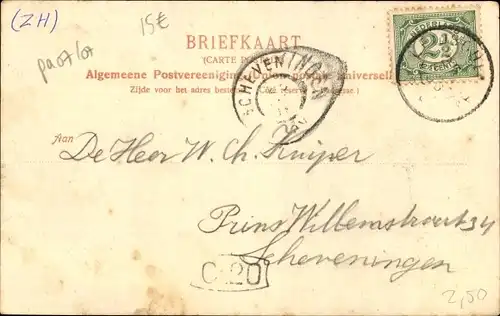 (ZH)
pa07/07
15€
BRIEFKAART
(CARTE
Algemeene Postvereeniging Union postale universelle
Zijde voor het adres bestemd Côté réservé
SCHEVENINGEN
NEDERLAND
2½
CENT
Aan
De Heer W. Ch. Kuiper
Prins Willemstraat 34
Scheveningen
C 20
2,50